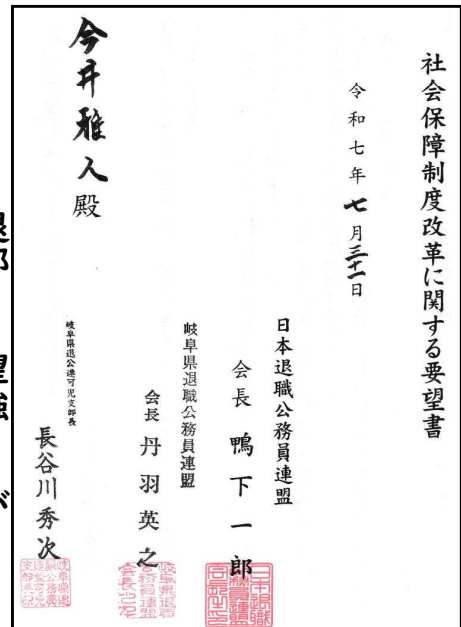 社会保障制度改革に関する要望書
令和七年七月三十一日
日本退職公務員連盟
会長 鴨下一郎
岐阜県退職公務員連盟
会長 丹羽英之
岐阜県退公連可児支部長
長谷川秀次
今井雅人殿